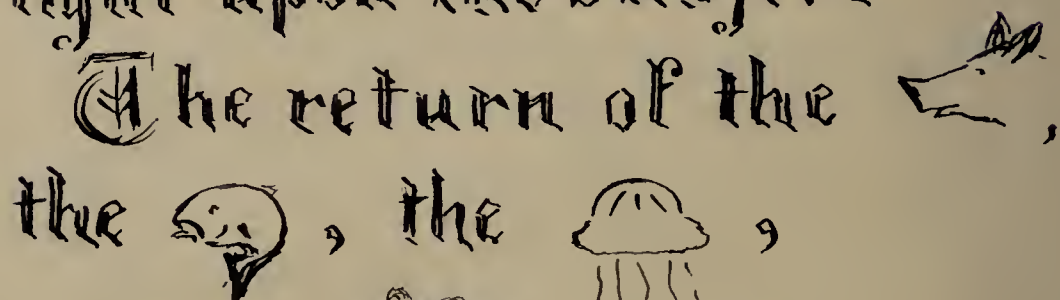 The return of the ,
the , the ,